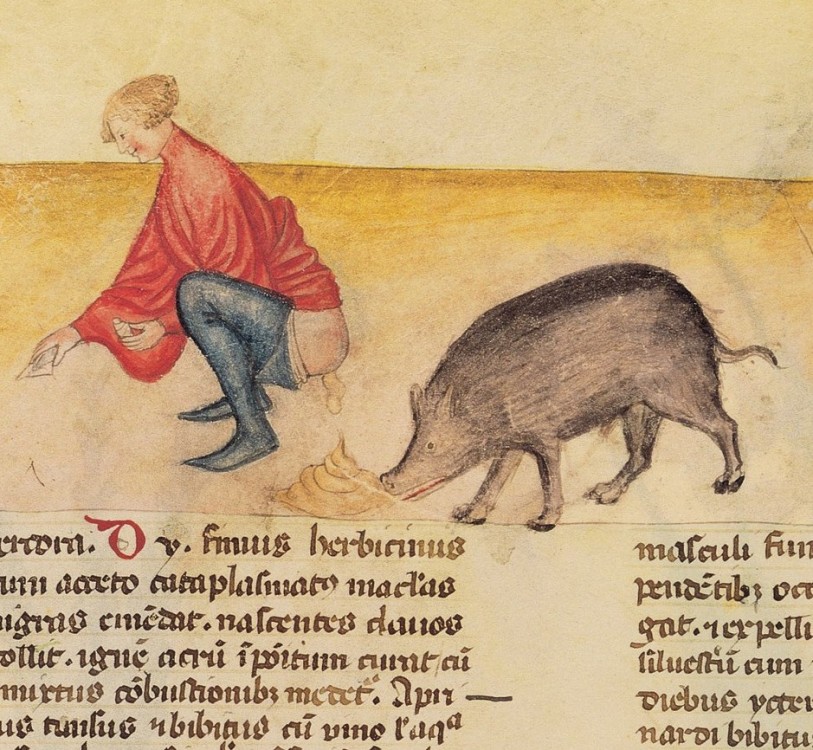 ercora. D
y. fimus herbicinus
cum acceto cataplasmatꝰ maclas
nigras emēdat. nascentes clauos
tollit. ignē acrū īpōitum curat cū
mixtus cōbustionibꝫ medetʳ. Apri
us tunsus ⁊ bibitus cū uino l'aqᵃ
masculi fun
pendētibꝫ occ
gat. ⁊ expelli
siluestrū cum
diebus ycter
nardi bibitu